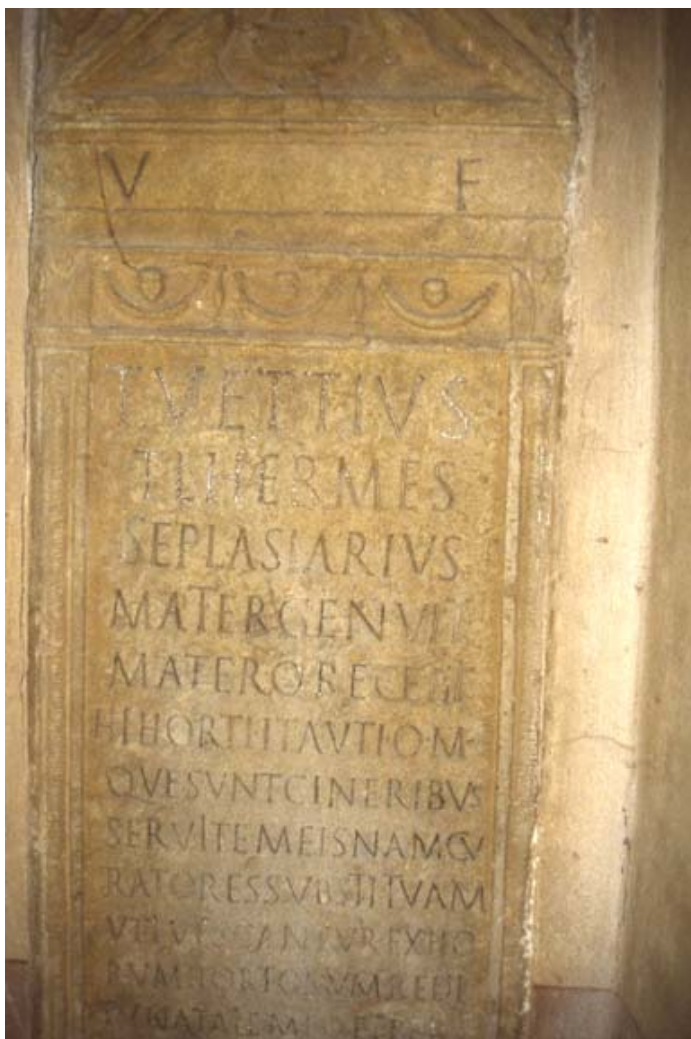 V F
T. VETTIVS
T. L. HERMES
SEPLASIARIVS
MATER GENVIT
MATER
HI HORTI
QVE SVNT CINERIBVS
SERVITE MEIS NAM CV
RATORES SVBSTITVAM
VTI VESCANTVR EX HO
RVM HORTORVM REDI
TV NATALE